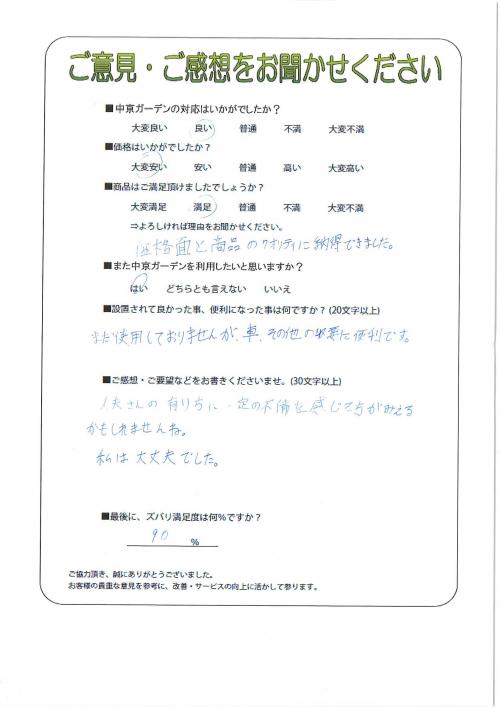 ご意見・ご感想をお聞かせください
■中京ガーデンの対応はいかがでしたか？
大変良い 良い 普通 不満 大変不満
■価格はいかがでしたか？
大変安い 安い 普通 高い 大変高い
■商品はご満足頂けましたでしょうか？
大変満足 満足 普通 不満 大変不満
⇒よろしければ理由をお聞かせください。
価格面と商品のクオリティに納得できました。
■また中京ガーデンを利用したいと思いますか？
はい どちらとも言えない いいえ
■設置されて良かった事、便利になった事は何ですか？(20文字以上)
まだ使用しておりませんが、車、その他の必要に便利です。
■ご感想・ご要望などをお書きくださいませ。(30文字以上)
さんの有り方に一定の不備を感じて
かもしれませんね。
私は大丈夫でした。
■最後に、ズバリ満足度は何%ですか？
90 %
ご協力頂き、誠にありがとうございました。
お客様の貴重な意見を参考に、改善・サービスの向上に活かして参ります。